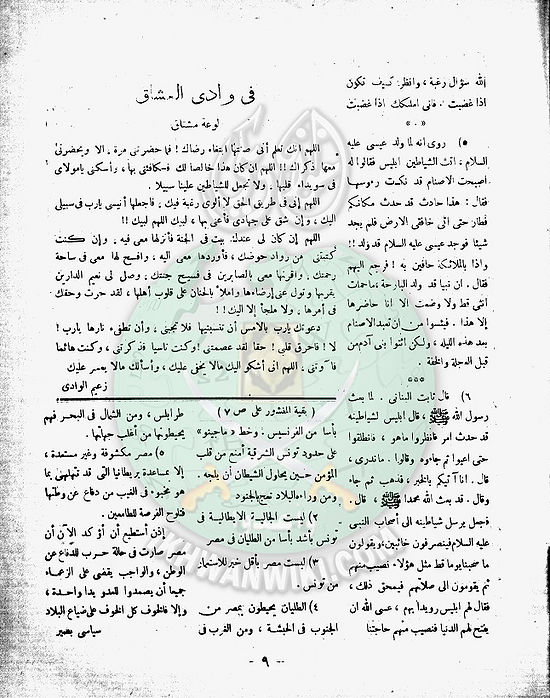 الله سؤال رغبة ، وانظر كيف تكون
اذا غضبت . فانى املكك اذا غضبت
٥) روى انه لما ولد عيسى عليه
السلام ، اتت الشياطين ابليس فقالوا له
اصبحت الاصنام قد نكست رءوسها
فقال : هذا حادث قد حدث مكانكم
فطار حتى اتى خافقى الارض فلم يجد
شيئا فوجد عيسى عليه السلام قد ولد !!
واذا بالملائكة حافين به ! فرجع اليهم
فقال . ان نبيا قد ولد البارحة ، ما حملت
انثى قط ولا وضعت الا انا حاضرها
إلا هذا . فيئسوا من ان تعبد الاصنام
بعد هذه الليلة ، ولكن ائتوا بنى آدم من
قبل العجلة والخفة .
***
٦) قال ثابت البنانى . لما بعث
رسول الله ﷺ ، قال ابليس لشياطينه
قد حدث امر فانظروا ما هو ، فانطلقوا
حتى اعيوا ثم جاءوه وقالوا . ماندرى ،
قال . انا آتيكم بالخبر ، فذهب ثم جاء
وقال . قد بعث الله محمدا ﷺ ، قال .
فجعل يرسل شياطينه الى أصحاب النبى
عليه السلام فينصرفون خائبين ، ويقولون
ما صحبنا قوما قط مثل هؤلاء . نصيب منهم
ثم يقومون الى صلاتهم فيمحق ذلك ،
فقال لهم ابليس رويدا بهم ، عسى الله ان
يفتح لهم الدنيا فنصيب منهم حاجتنا
فى وادى العشاق
لوعة مشتاق
اللهم انك تعلم أنى صنتها ابتغاء رضاك ! فما حضرنى مرة ، الا ويحضرنى
معها ذكراك !! اللهم ان كان هذا خالصا لك فكافئنى بها ، وأسكنى يامولاى
فى سويداء قلبها . ولا تجعل للشياطين علينا سبيلا .
اللهم إنى فى طريق الحق لا ألوى رغبة فيك ، فاجعلها أنيسى يارب فى سبيلى
اليك ، وإن شق على جهادى فأعنى بها ، لبيك اللهم لبيك !!
اللهم إن كان لى عندك بيت فى الجنة فأنزلها معى فيه . وإن كنت
كتبتنى من رواد حوضك ، فأوردها معى اليه ، وافسح لها معى فى ساحة
رحمتك . واقرنها معى بالصابرين فى فسيح جنتك . وصل لى نعيم الدارين
بقربها وتول عنى إرضاءها واملأ بالحنان على قلوب أهلها ، لقد حرت وحقك
فى أمرها . ولا ملجأ إلا اليك !!
دعوتك يارب بالامس أن تنسينيها فلا تجبنى ، وأن تطفىء نارها يارب !
لا ! فاحرق قلبى ! حقا لقد عصمتنى ! وكنت ناسيا فذكرتنى ، وكنت هائما
فآويتنى . اللهم انى أشكو اليك مالا يخفى عليك ، وأسألك مالا يعسر عليك
زعيم الوادى
( بقية المنشور على ص ٧ )
بأسا من الفرنسيس . وخط « ماجينو »
على حدود تونس الشرقية أمنع من قلب
المؤمن حين يحاول الشيطان أن يلجه .
ومن وراءه البلاد تعج بالجنود
٢) ليست الجالية الايطالية فى
تونس بأشد بأسا من الطليان فى مصر
٣) ليست مصر بأقل خير للاستعمار
من تونس .
٤) الطليان يحيطون بمصر من
الجنوب فى الحبشة ، ومن الغرب فى
طرابلس ، ومن الشمال فى البحر فهم
يحيطونها من أغلب جهاتها .
٥) مصر مكشوفة وغير مستعدة ،
إلا بمساعدة بريطانيا التى قد تلهيها بما
هو مخبوء فى الغيب من دفاع عن وطنها
فتلوح الفرصة للطامعين .
إذن أستطيع أن أؤكد الآن أن
مصر صارت فى حالة حرب للدفاع عن
الوطن ، والواجب يقضى على الزعماء
جميعا أن يصمدوا للعدو يدا واحدة ،
وإلا فالخوف كل الخوف على ضياع البلاد
سياسى بصير
- ٩ -